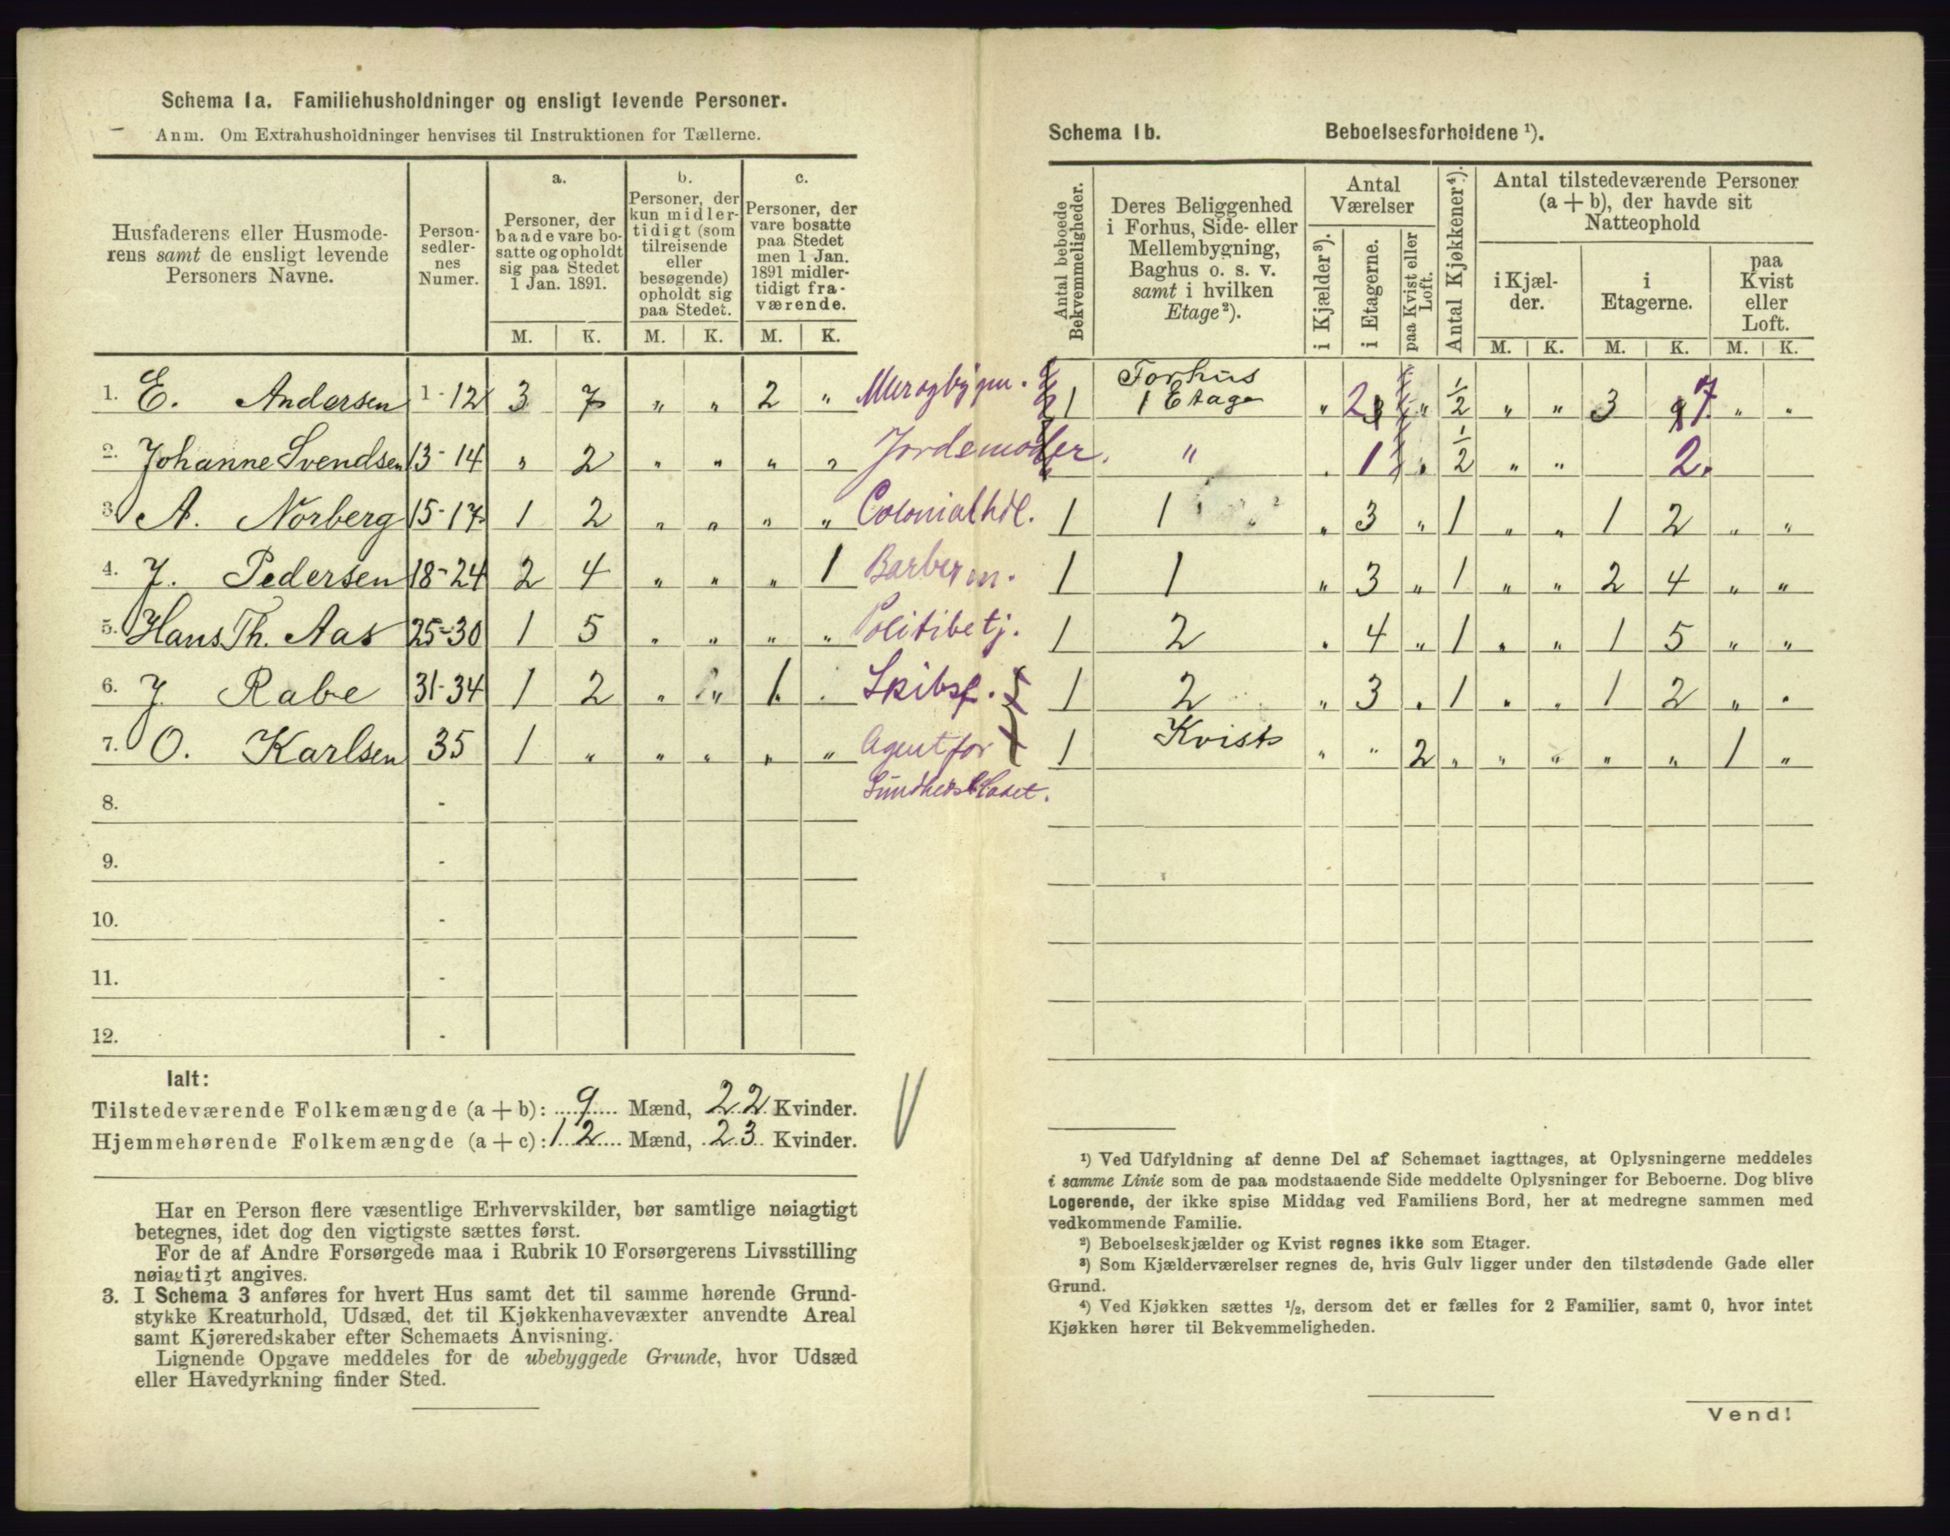 Schema 1a. Familiehusholdninger og ensligt levende Personer.
Anm. Om Extrahusholdninger henvises til Instruktionen for Tællerne.
Husfaderens eller Husmode-
rens samt de ensligt levende
Personers Navne.
Person-
sedler-
nes
Numer.
a.
Personer, der
baade vare bo-
satte og opholdt
sig paa Stedet
1 Jan. 1891.
b.
Personer, der
kun midler-
tidigt (som
tilreisende
eller
besøgende)
opholdt sig
paa Stedet.
c.
Personer, der
vare bosatte
paa Stedet
men 1 Jan.
1891 midler-
tidigt fra-
værende.
M. K. M. K. M. K.
1. E. Andersen 1-12 3 7 „ „ 2 „ Murogbygm.
2. Johanne Svendsen 13-14 „ 2 „ „ „ „ Jordemoder.
3. A. Norberg 15-17 1 2 „ „ „ „ Colonialhdl.
4. J. Pedersen 18-24 2 4 „ „ „ 1 Barberm.
5. Hans Th. Aas 25-30 1 5 „ „ „ „ Politibetj.
6. J. Rabe 31-34 1 2 „ „ 1 Skibsf.
7. O. Karlsen 35 1 „ „ „ „ „ Agent for
Sundhedsbladet.
8. -
9. -
10. -
11. -
12. -
Ialt:
Tilstedeværende Folkemængde (a + b): 9 Mænd, 22 Kvinder.
Hjemmehørende Folkemængde (a + c): 12 Mænd, 23 Kvinder.
Har en Person flere væsentlige Erhvervskilder, bør samtlige nøiagtigt
betegnes, idet dog den vigtigste sættes først.
For de af Andre Forsørgede maa i Rubrik 10 Forsørgerens Livsstilling
nøiagtigt angives.
3. I Schema 3 anføres for hvert Hus samt det til samme hørende Grund-
stykke Kreaturhold, Udsæd, det til Kjøkkenhavevæxter anvendte Areal
samt Kjøreredskaber efter Schemaets Anvisning.
Lignende Opgave meddeles for de ubebyggede Grunde, hvor Udsæd
eller Havedyrkning finder Sted.
Schema 1b. Beboelsesforholdene ¹).
Antal beboede
Bekvemmeligheder.
Deres Beliggenhed
i Forhus, Side- eller
Mellembygning,
Baghus o. s. v.
samt i hvilken
Etage²).
Antal
Værelser
i Kjælder³).
i Etagerne.
paa Kvist eller
Loft.
Antal Kjøkkener⁴).
Antal tilstedeværende Personer
(a + b), der havde sit
Natteophold
i Kjæl-
der.
i
Etagerne.
paa
Kvist
eller
Loft.
M. K. M. K. M. K.
1 Forhus
1 Etage „ 2 „ 1/2 „ „ 3 7 „ „
„ 1 „ 1/2 „ „ 2.
1 1 „ 3 „ 1 „ „ 1 2 „ „
1 1 „ 3 „ 1 „ „ 2 4 „ „
1 2 „ 4 „ 1 „ „ 1 5 „ „
1 2 „ 3 „ 1 „ „ 1 2 „ „
1 Kvist „ „ 2 „ „ „ „ „ 1 „
¹) Ved Udfyldning af denne Del af Schemaet iagttages, at Oplysningerne meddeles
i samme Linie som de paa modstaaende Side meddelte Oplysninger for Beboerne. Dog blive
Logerende, der ikke spise Middag ved Familiens Bord, her at medregne sammen med
vedkommende Familie.
²) Beboelseskjælder og Kvist regnes ikke som Etager.
³) Som Kjælderværelser regnes de, hvis Gulv ligger under den tilstødende Gade eller
Grund.
⁴) Ved Kjøkken sættes 1/2, dersom det er fælles for 2 Familier, samt 0, hvor intet
Kjøkken hører til Bekvemmeligheden.
Vend!